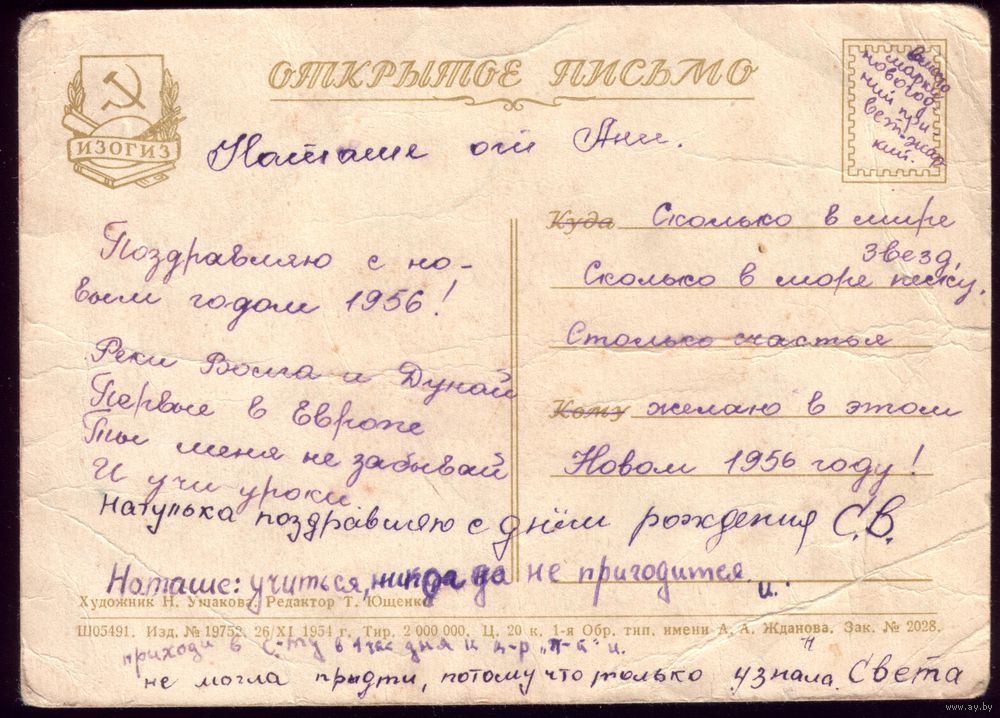 ОТКРЫТОЕ ПИСЬМО
ИЗОГИЗ
вместо
марки
новогод
ний при
вет-
кий.
Наташе от Ани.
Поздравляю с но-
вым годом 1956!
Реки Волга и Дунай
Первые в Европе
Ты меня не забывай
И учи уроки
Куда Сколько в мире
звезд,
Сколько в море песку,
Столько счастья
Кому желаю в этом
Новом 1956 году!
Натулька поздравляю с днём рождения С.В.
Наташе: учиться, никогда не пригодится
и.
Художник Н. Ушакова. Редактор Т. Ющенко
Ш05491. Изд. № 19752. 26/XI 1954 г. Тир. 2 000 000. Ц. 20 к. 1-я Обр. тип. имени А. А. Жданова. Зак. № 2028.
приходи в с-ту в 1 час дня к и.
не могла придти, потому что только узнала. Света